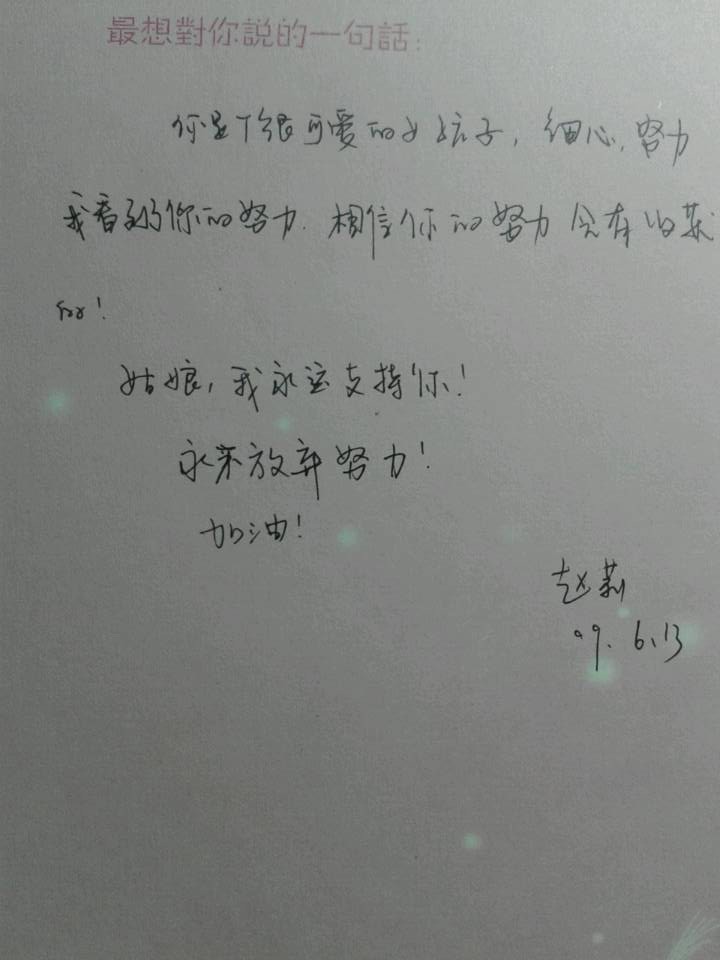 最想對你説的一句話：
你是个很可爱的女孩子，细心，努力
我看到你的努力．相信你的努力会有收获
的！
姑娘，我永远支持你！
永不放弃努力！
加油！
赵莉
09. 6.13